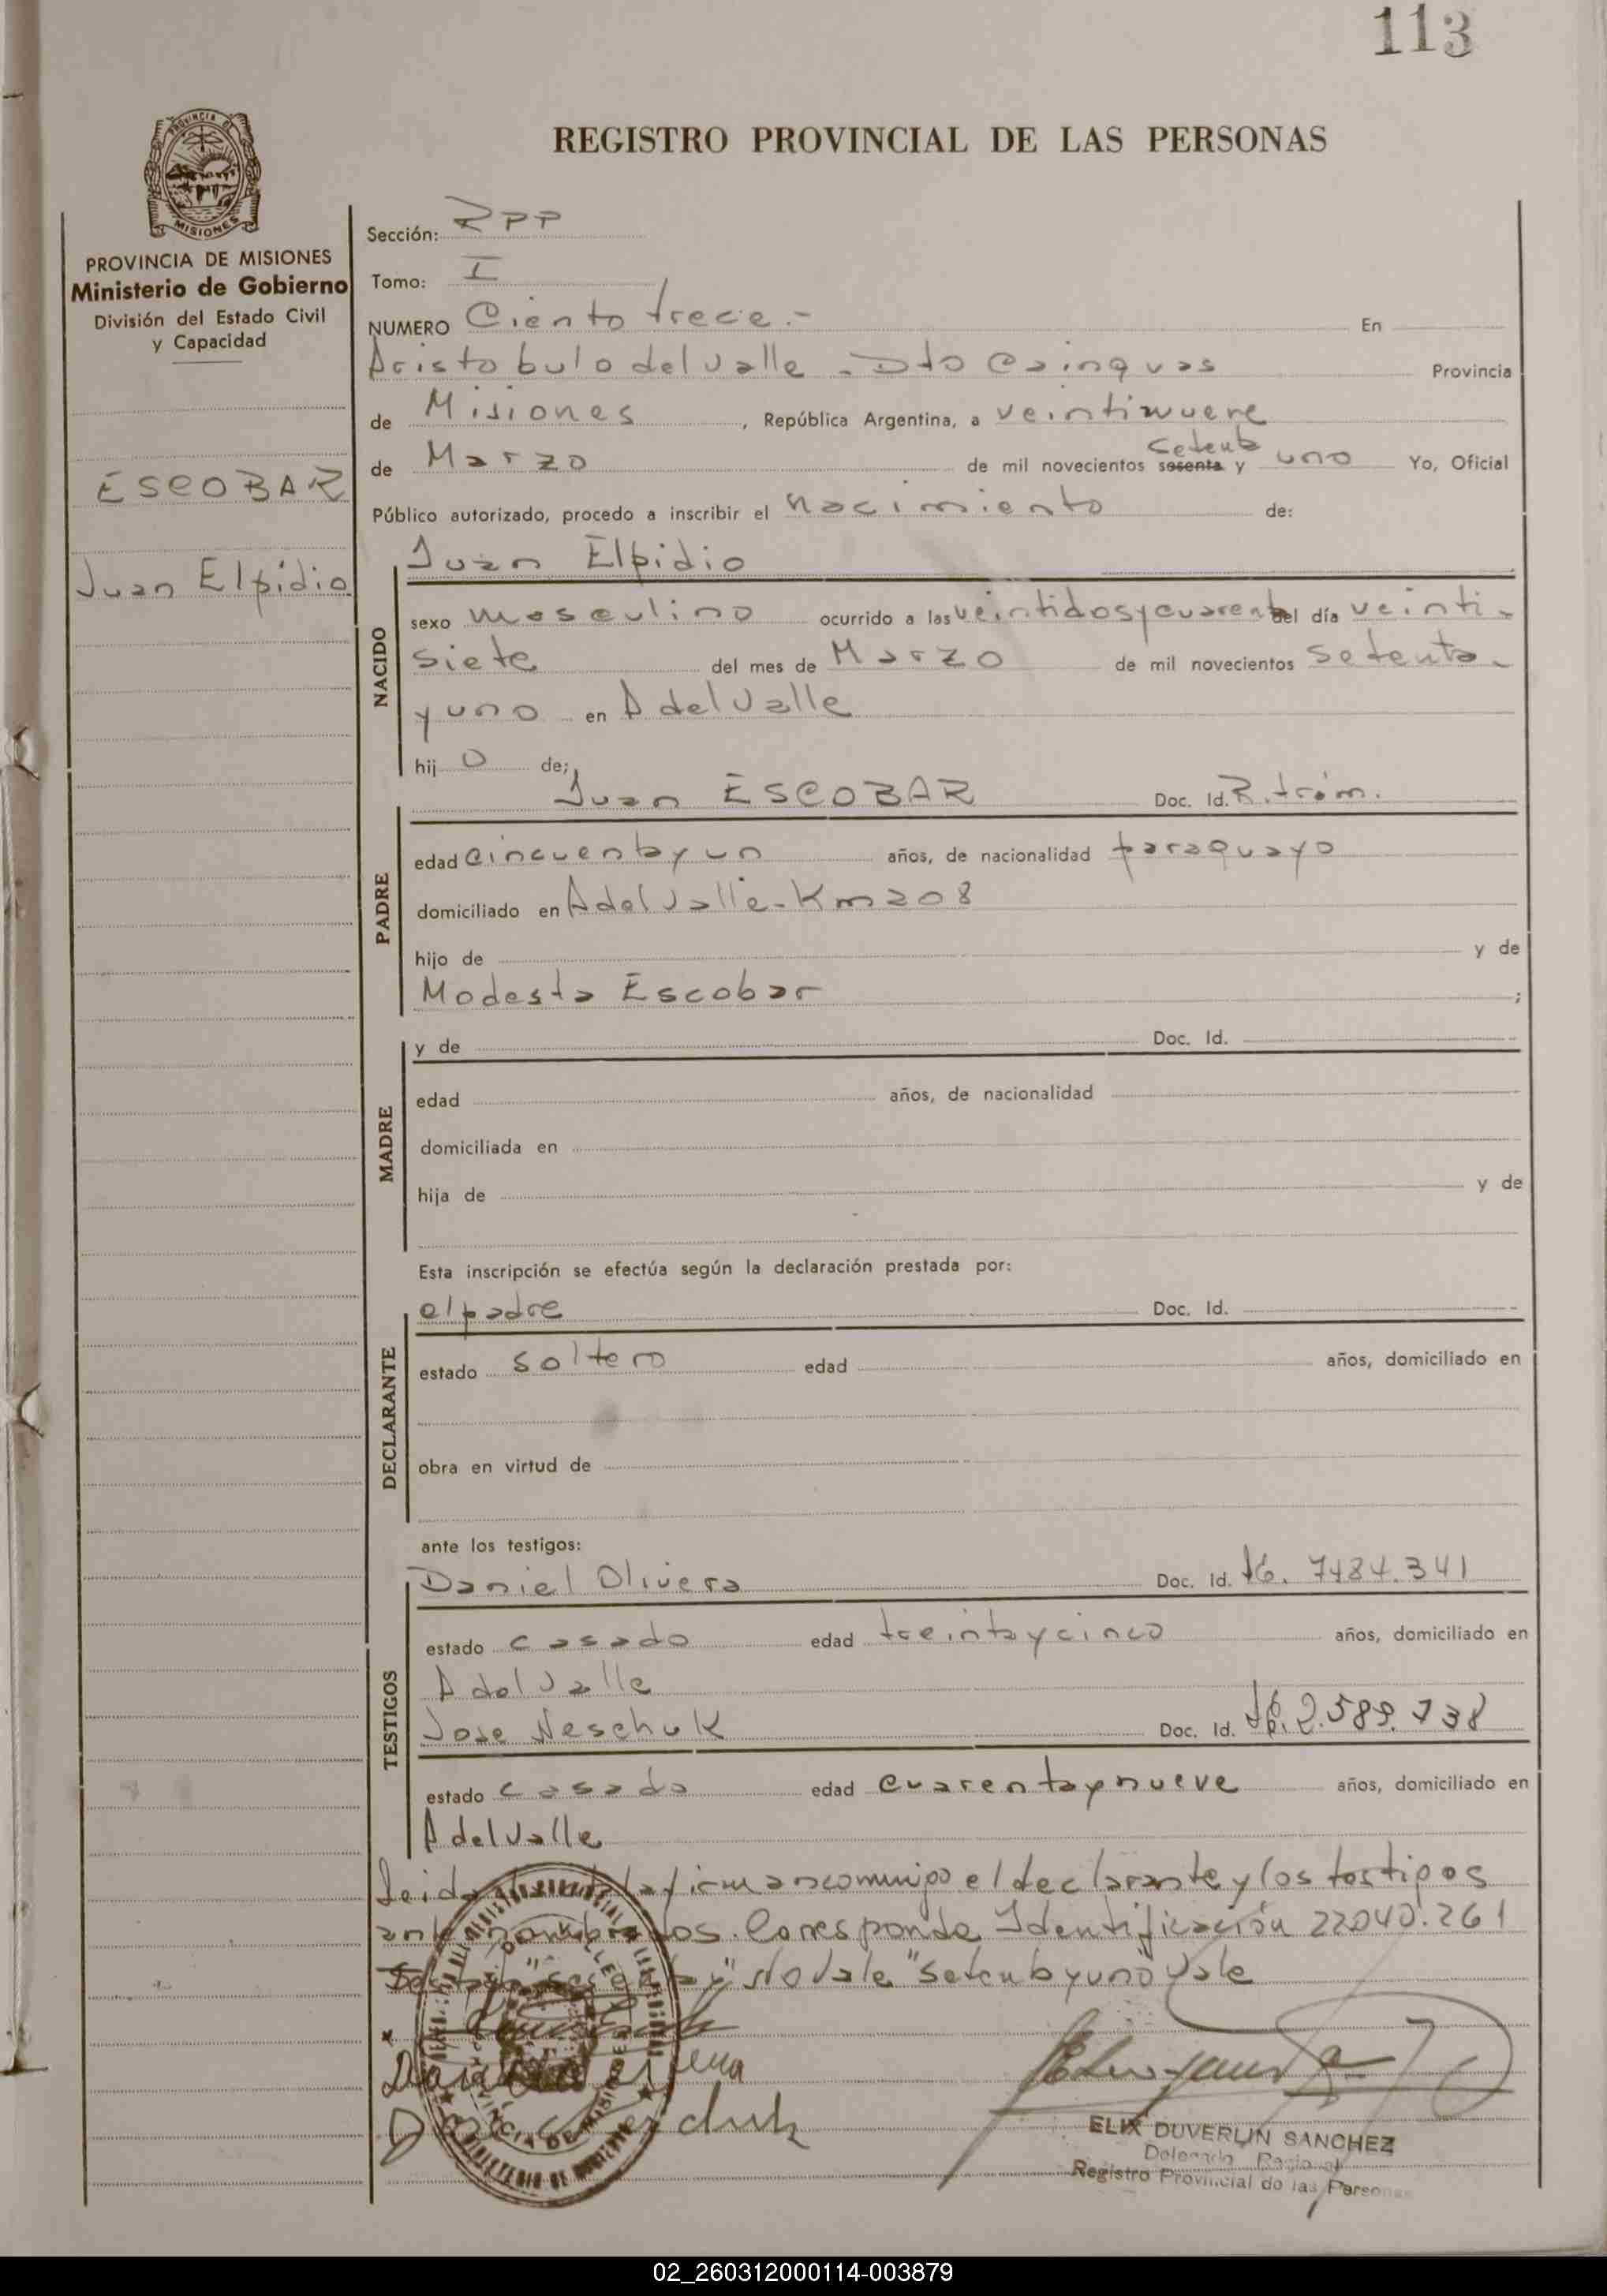 113
REGISTRO PROVINCIAL DE LAS PERSONAS
PROVINCIA DE
MISIONES
PROVINCIA DE MISIONES
Ministerio de Gobierno
División del Estado Civil
y Capacidad
ESCOBAR
Juan Elpidio
Sección: RPP
Tomo: I
NUMERO Ciento trece.- En
Aristobulo del Valle - Dto Cainguas Provincia
de Misiones, República Argentina, a veintinueve
de Marzo de mil novecientos sesenta y setenta uno Yo, Oficial
Público autorizado, procedo a inscribir el nacimiento de:
Juan Elpidio
NACIDO
sexo masculino ocurrido a las veintidos y cuarenta del día veinti-
siete del mes de Marzo de mil novecientos setenta-
y uno en A del Valle
hij o de;
Juan ESCOBAR Doc. Id. R. trám.
PADRE
edad cincuenta y un años, de nacionalidad paraguayo
domiciliado en A del Valle - Km 208
hijo de y de
Modesta Escobar ;
MADRE
y de Doc. Id.
edad años, de nacionalidad
domiciliada en
hija de y de
Esta inscripción se efectúa según la declaración prestada por:
DECLARANTE
el padre Doc. Id.
estado soltero edad años, domiciliado en
obra en virtud de
ante los testigos:
TESTIGOS
Daniel Olivera Doc. Id. 7484.341
estado casado edad treinta y cinco años, domiciliado en
A del Valle
Jose Neschuk Doc. Id. 2.589.738
estado casado edad cuarenta y nueve años, domiciliado en
A del Valle
Leida firman conmigo el declarante y los testigos
antenombrados. Corresponde Identificación 22.040.261
No vale "setenta y uno" Vale
ELIX DUVERLIN SANCHEZ
Delegado
Registro Provincial de las Personas
02_260312000114-003879